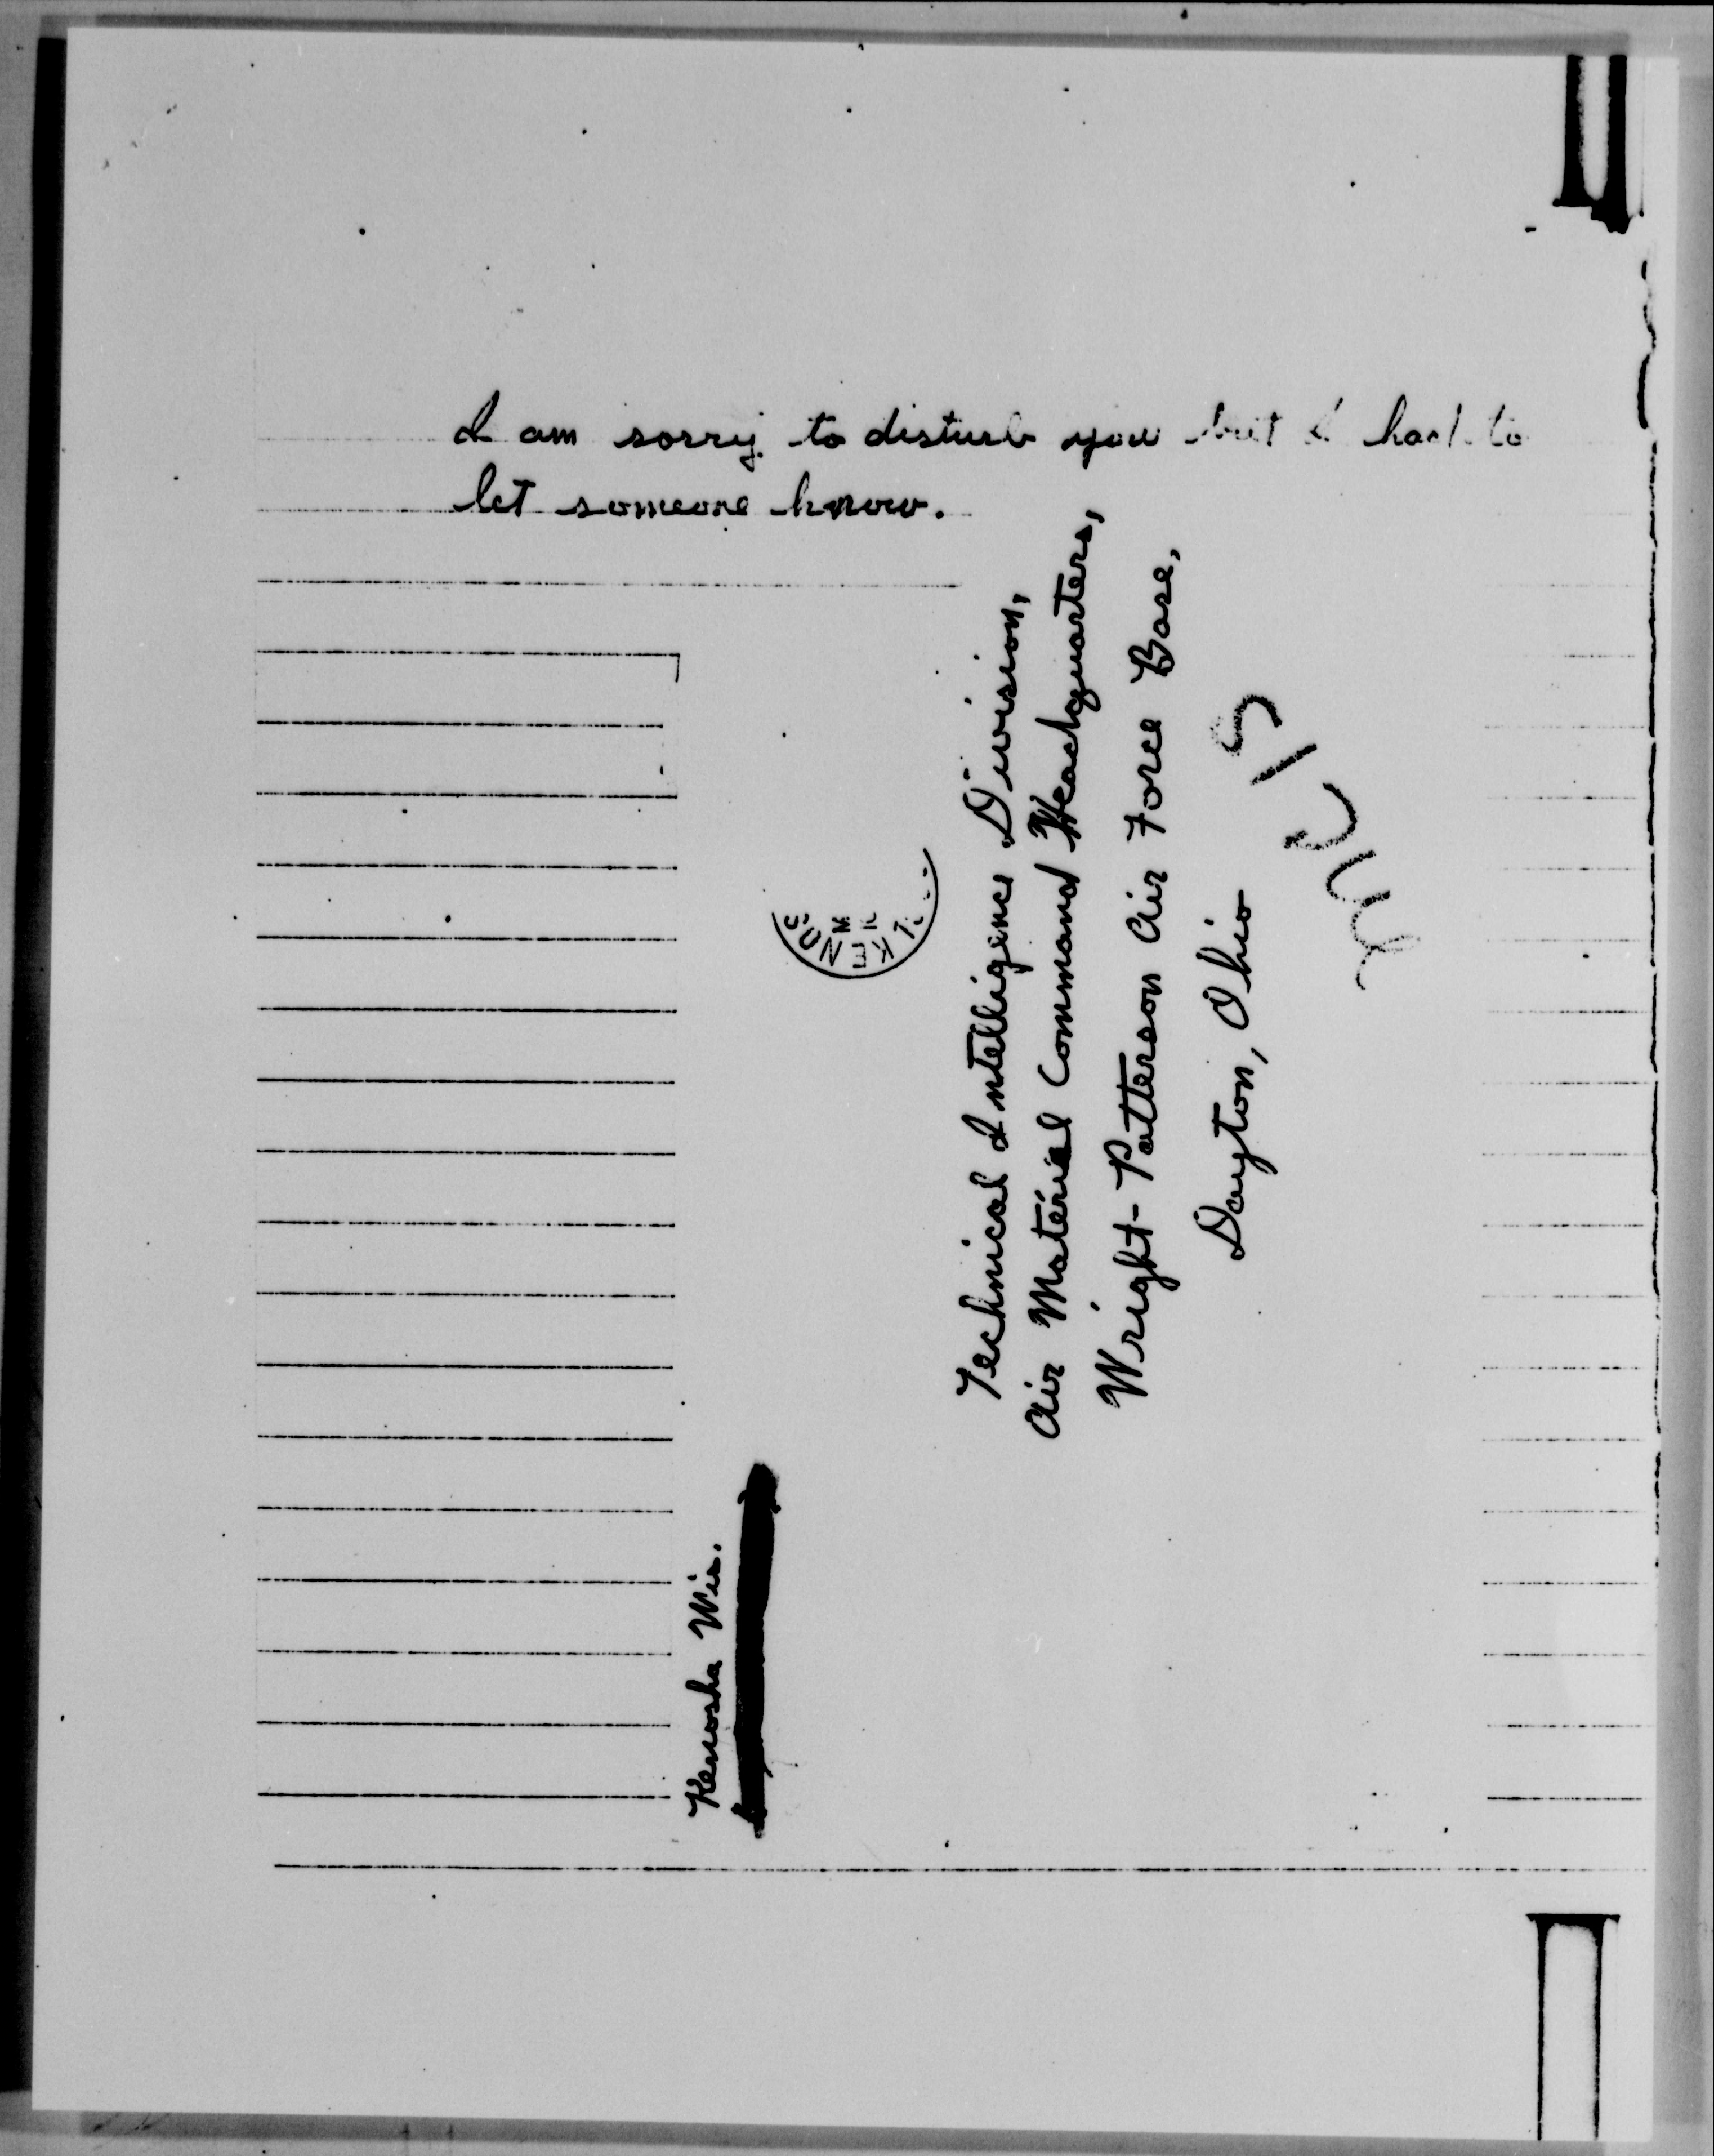 I am sorry to disturb you but I had to
let someone know.
Kenosha Wis.
KENOS
Technical Intelligence Division,
Air Material Command Headquarters,
Wright-Patterson Air Force Base,
Dayton, Ohio